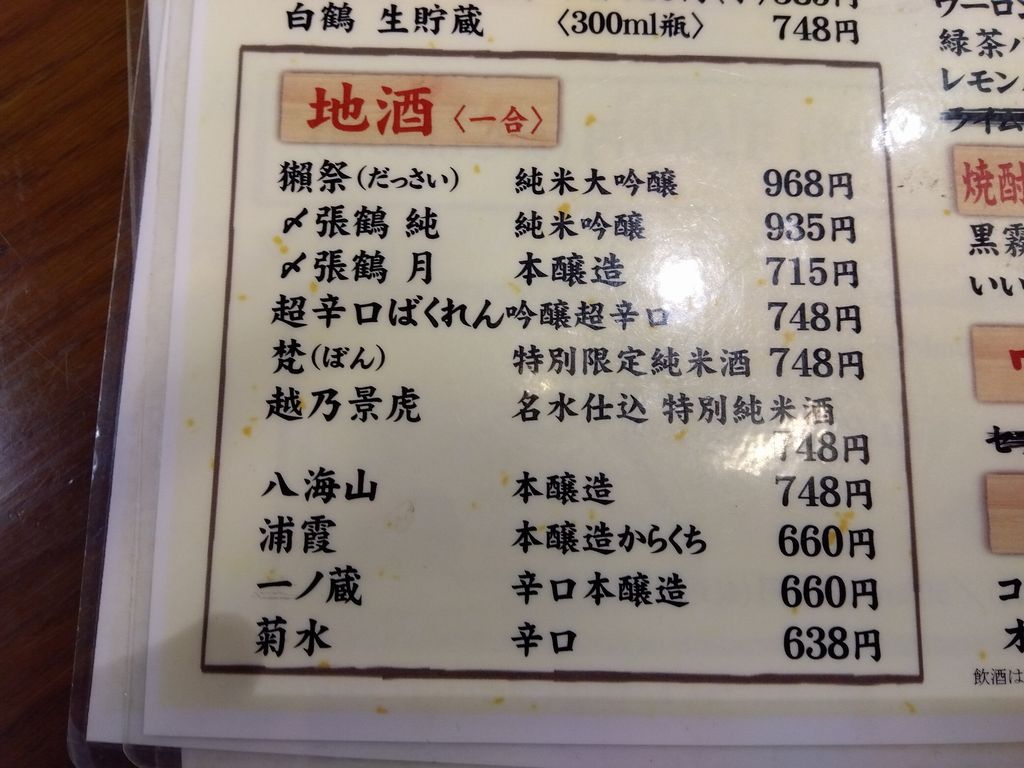 白鶴 生貯蔵 〈300ml瓶〉 748円
地酒〈一合〉
獺祭(だっさい) 純米大吟醸 968円
〆張鶴 純 純米吟醸 935円
〆張鶴 月 本醸造 715円
超辛口ばくれん 吟醸超辛口 748円
梵(ぼん) 特別限定純米酒 748円
越乃景虎 名水仕込 特別純米酒
748円
八海山 本醸造 748円
浦霞 本醸造からくち 660円
一ノ蔵 辛口本醸造 660円
菊水 辛口 638円
ウーロン
緑茶ハ
レモン
焼酎
黒霧
いい
飲酒は